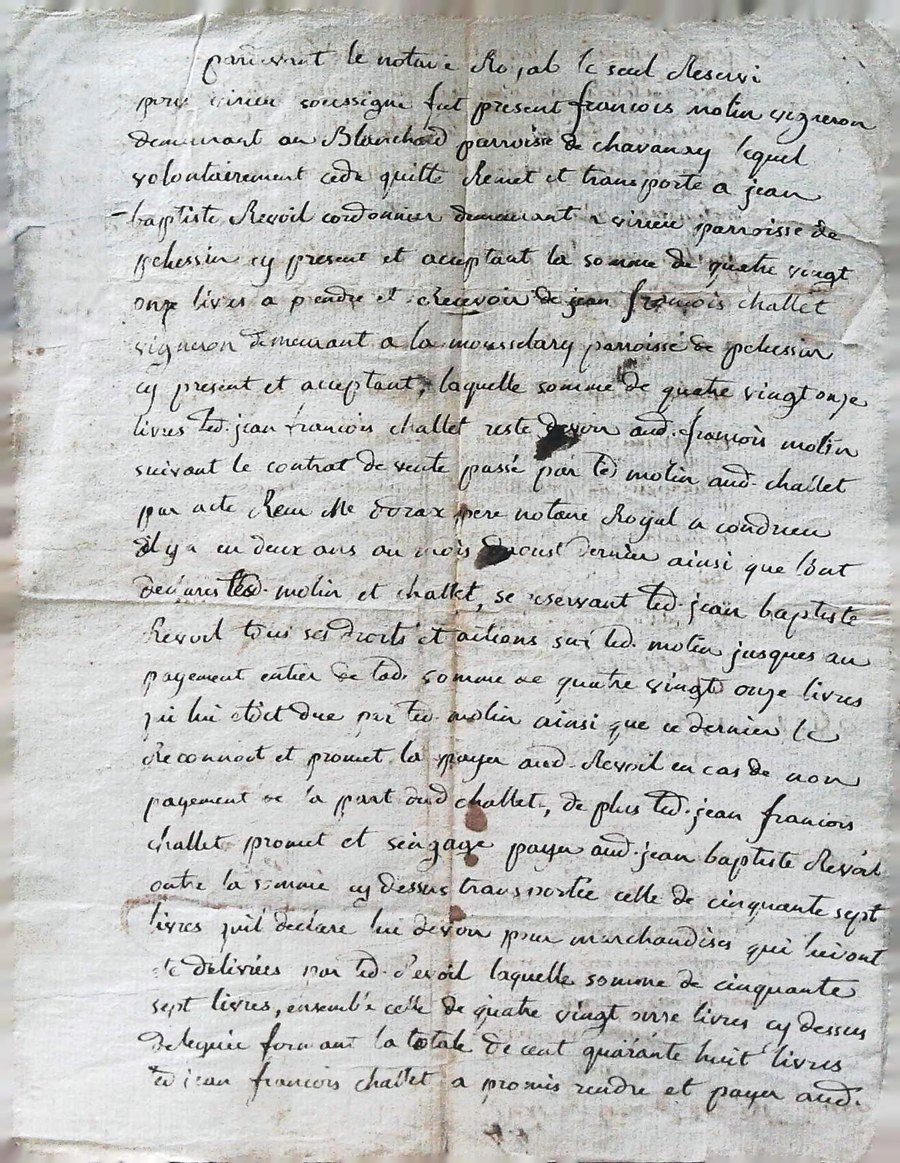 pardevant le notaire Royal le seul Reservé
pour virieu soussigné fut présent francois molin vigneron
demeurant au Blanchard parroisse de chavanay lequel
volontairement cede quitte Remet et transporte a jean
baptiste Revoil cordonnier demeurant a virieu parroisse de
pelussin cy present et acceptant la somme de quatre vingt
onze livres a prendre et Recevoir de jean francois challet
vigneron demeurant a la parroisse de pelussin
cy present et acceptant, laquelle somme de quatre vingt onze
livres led. jean francois challet reste devoir aud. francois molin
suivant le contrat de vente passé par led molin aud. challet
par acte Recu Me pere notaire Royal a condrieu
il y a eu deux ans au mois daoust dernier ainsi que lont
declarés lesd. molin et challet, se reservant led. jean baptiste
Revoil tous ses droits et actions sur led. molin jusques au
payement entier de lad. somme de quatre vingt onze livres
qui lui etoit due par led. molin ainsi que ce dernier le
Reconnoit et promet la payer aud. Revoil en cas de non
payement de la part dud challet, de plus led. jean francois
challet promet et sengage payer aud. jean baptiste Revoil
outre la somme cy dessus transportée celle de cinquante sept
livres quil declare lui devoir pour marchandises qui lui ont
ete delivrées par led. Revoil laquelle somme de cinquante
sept livres, ensemble celle de quatre vingt onze livres cy dessus
deleguée formant la totale de cent quarante huit livres
led jean francois challet a promis rendre et payer aud.